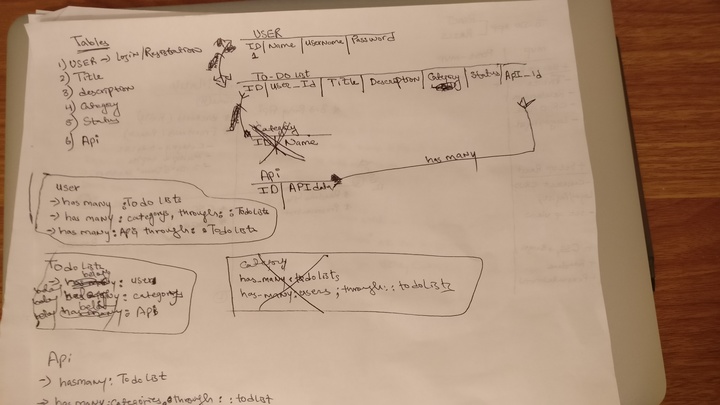 Tables
1) USER → Login/Registration
2) Title
3) description
4) Category
5) Status
6) Api
USER
ID | Name | UserName | Password
1
To-Do List
ID | User_Id | Title | Description | Category | Status | API_id
Category
ID | Name
has many
Api
ID | API data
user
→ has many : Todo Lists
→ has many : category, through: : Todo Lists
→ has many : Api, through: : Todo Lists
Todo Lists
: user
: category
: Api
Category
has_many : todo lists
has_many : users ; through: : todo Lists
Api
→ hasmany : Todo List
→ has many : categories, through : : todlist